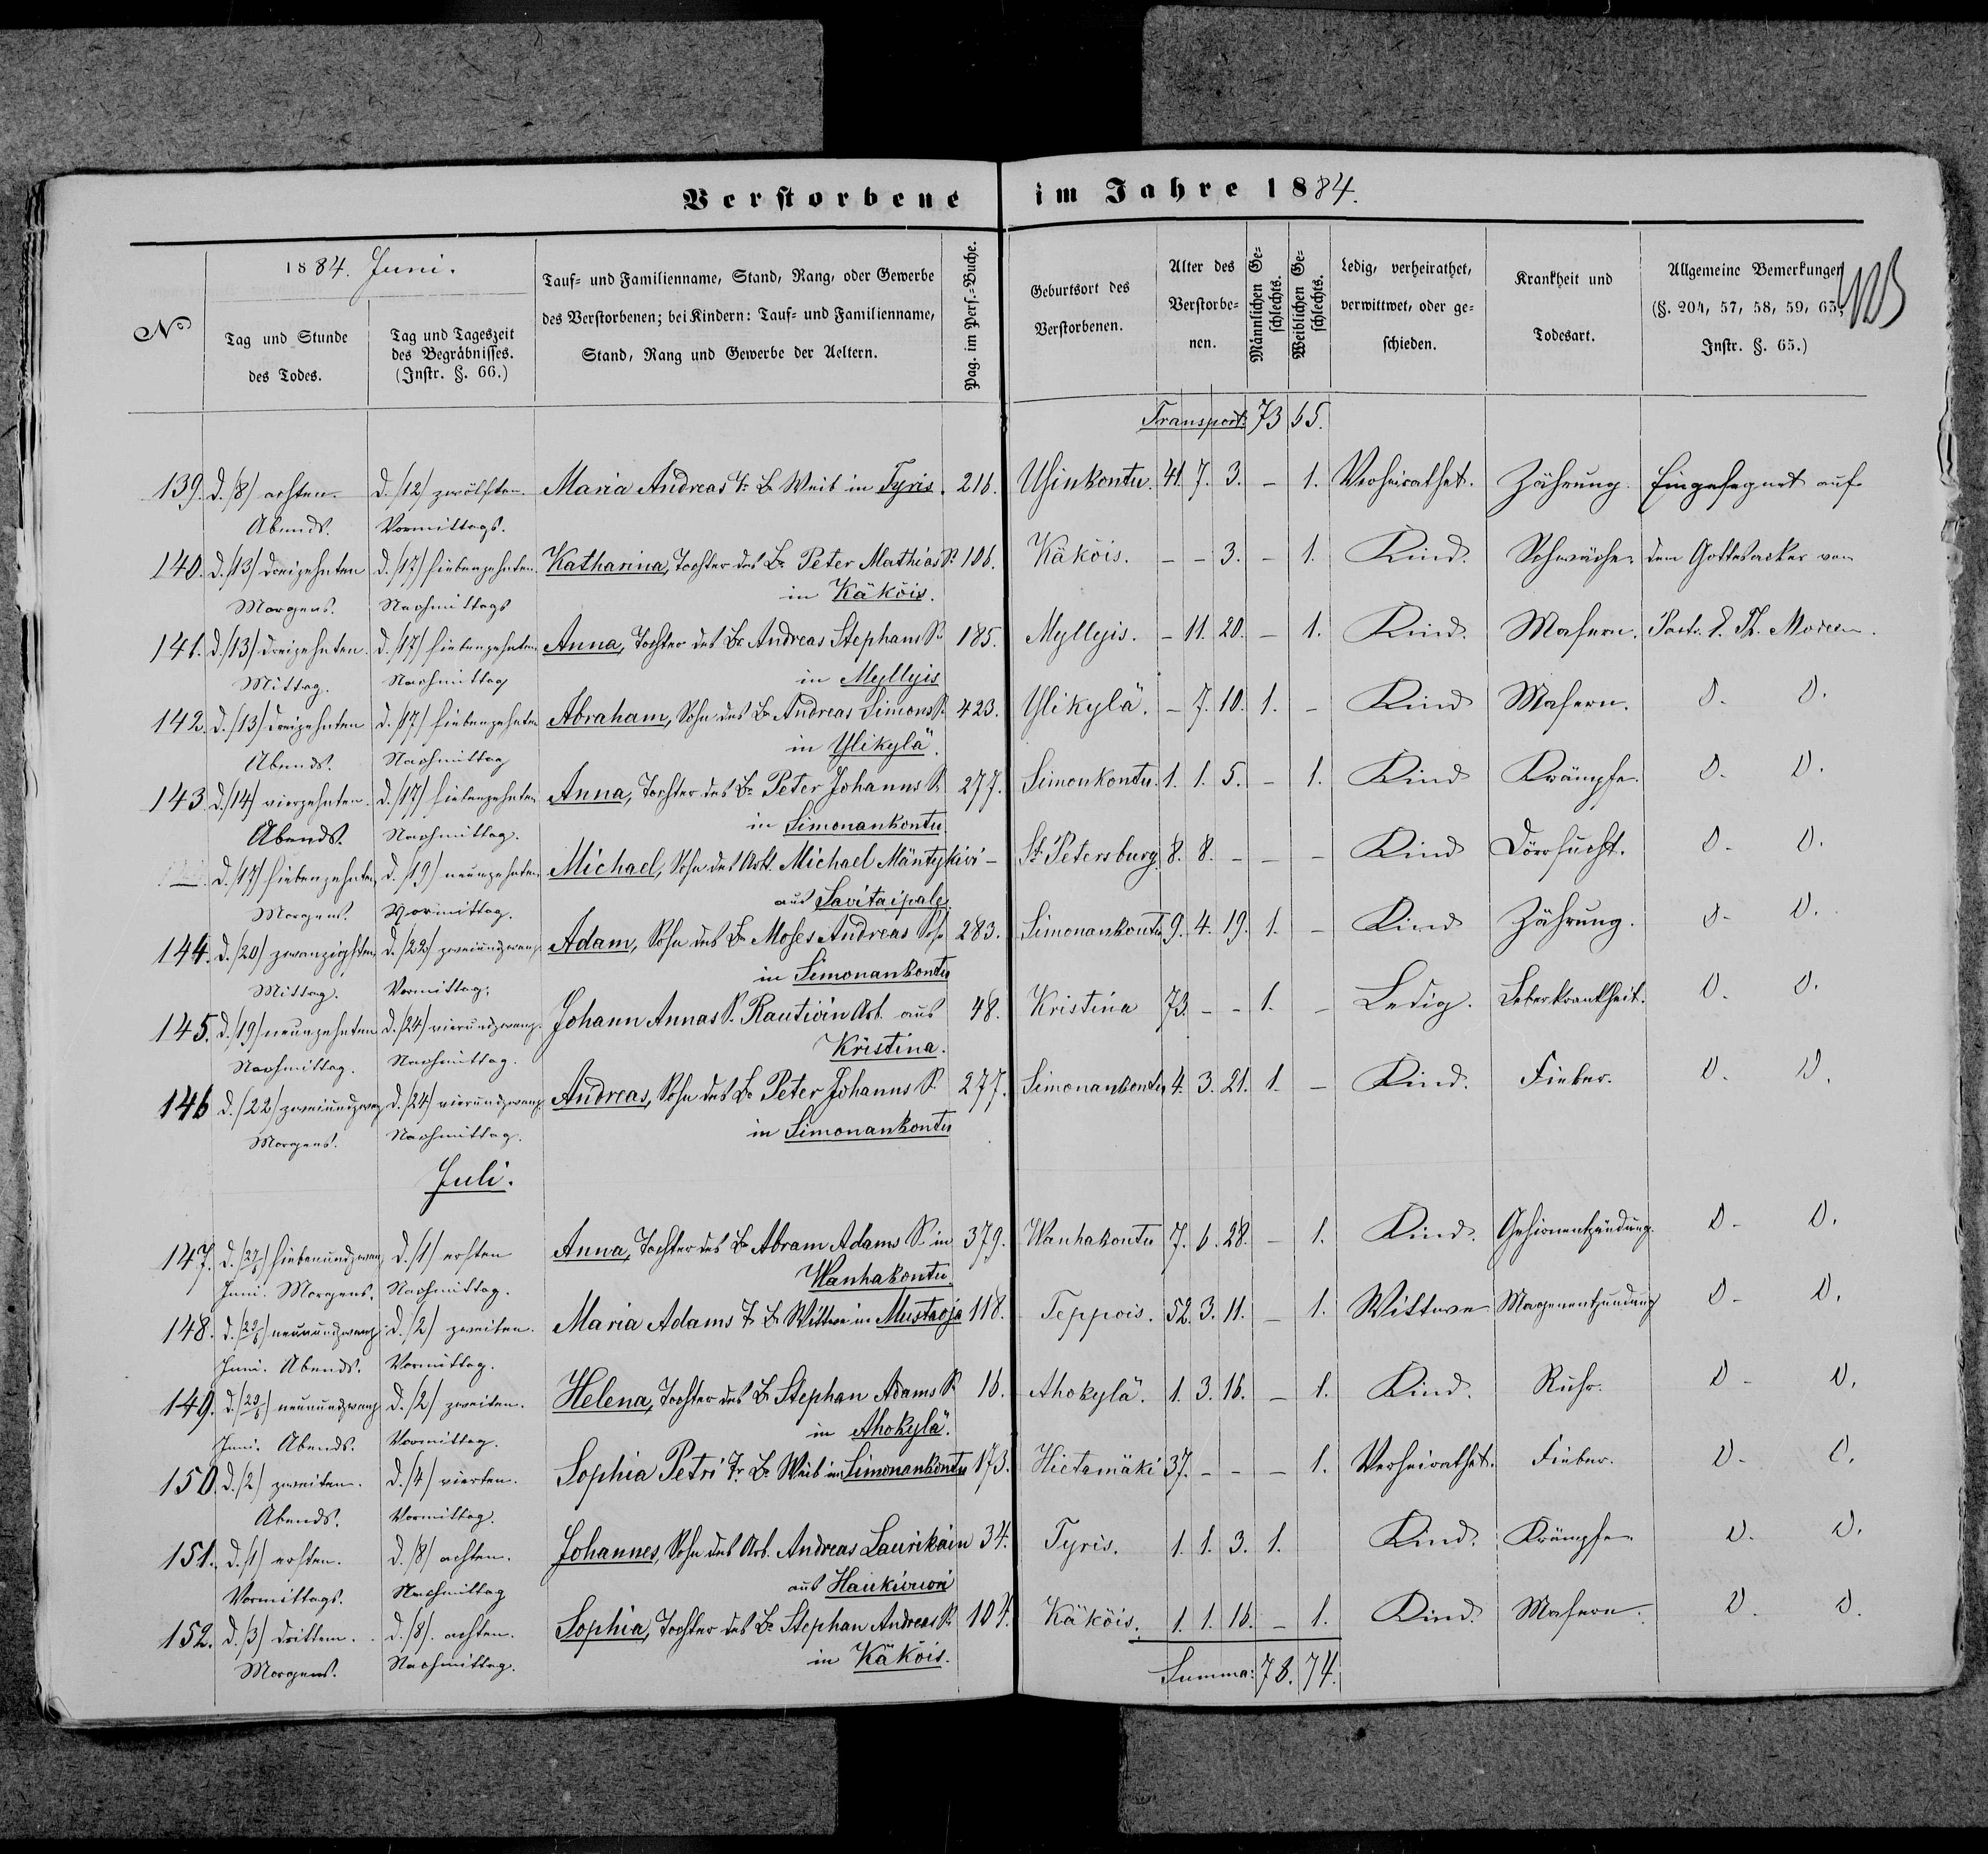 Verstorbene im Jahre 1884.
1884. Juni.
No
Tag und Stunde des Todes.
Tag und Tageszeit des Begräbnisses. (Instr. §. 66.)
Tauf- und Familienname, Stand, Rang, oder Gewerbe
des Verstorbenen; bei Kindern: Tauf- und Familienname,
Stand, Rang und Gewerbe der Aeltern.
Pag. im Pers.-Buche.
Geburtsort des Verstorbenen.
Alter des Verstorbenen.
Männlichen Geschlechts.
Weiblichen Geschlechts.
Ledig, verheirathet, verwittwet, oder geschieden.
Krankheit und Todesart.
Allgemeine Bemerkungen
(§. 204, 57, 58, 59, 63,
Instr. §. 65.)
Transport: 73 65.
139. d. /8/ achten. d. /12/ zwölften. Maria Andreas T. B. Weib in Tyris. 216. Usinkontu. 41. 7. 3. – 1. Verheirathet. Zährung. Eingesegnet auf
Abends. Vormittags.
140. d. /13/ dreizehnten d. /17/ siebenzehnten. Katharina, Tochter des B. Peter Mathias S. 106. Käköis. – – 3. – 1. Kind. Schwäche. dem Gottesacker von
Morgens. Nachmittags in Käköis.
141. d. /13/ dreizehnten. d. /17/ siebenzehnten Anna, Tochter des B. Andreas Stephans S. 185. Myllyis. – 11. 20. – 1. Kind. Masern. Past.
Mittag. Nachmittag in Myllyis
142. d. /13/ dreizehnten d. /17/ siebenzehnten Abraham, Sohn des B. Andreas Simons S. 423. Ylikylä. – 7. 10. 1. – Kind Masern. D. D.
Abends. Nachmittag in Ylikylä.
143. d. /14/ vierzehnten. d. /17/ siebenzehnten Anna, Tochter des B. Peter Johanns S. 277. Simonkontu. 1. 1. 5. – 1. Kind Krämpfe. D. D.
Abends. Nachmittag. in Simonankontu.
d. /17/ siebenzehnten d. /19/ neunzehnten Michael, Sohn des Arb. Michael Mäntykivi – St. Petersburg. 8. 8. – – – Kind Dörrsucht. D. D.
Morgens. Vormittag. aus Savitaipale.
144. d. /20/ zwanzigsten d. /22/ zweiundzwanz. Adam, Sohn des B. Moses Andreas Sohn 283. Simonankontu 9. 4. 19. 1. – Kind Zährung. D. D.
Mittag. Vormittag. in Simonankontu
145. d. /19/ neunzehnten d. /24/ vierundzwanz. Johann Annas S. Rautiain Arb. aus 48. Kristina 73. – – 1. – Ledig. Leberkrankheit. D. D.
Nachmittag. Nachmittag. Kristina.
146 d. /22/ zweiundzwanz d. /24/ vierundzwanz. Andreas, Sohn des B. Peter Johanns S. 277. Simonankontu 4. 3. 21. 1. – Kind. Fieber. D. D.
Morgens. Nachmittag. in Simonankontu
Juli.
147. d. /27/6/ siebenundzwan d. /1/ ersten Anna, Tochter des B. Abram Adams S. in 379. Wanhakontu 7. 6. 28. – 1. Kind. Gehirnentzündung. D. D.
Juni. Morgens. Nachmittag. Wanhakontu.
148. d. /29/6/ neunundzwanz. d. /2/ zweiten. Maria Adams T. B. Wittwe in Mustaoja 118. Teppois. 52. 3. 11. – 1. Wittwe Magenentzündung D. D.
Juni. Abends. Vormittag.
149. d. /29/6/ neunundzwanz d. /2/ zweiten. Helena, Tochter des B. Stephan Adams S. 16. Ahokylä. 1. 3. 16. – 1. Kind. Ruhr. D. D.
Juni. Abends. Vormittag. in Ahokylä.
150. d. /2/ zweiten. d. /4/ vierten. Sophia Petri Tr. B. Weib in Simonankontu 173. Hietamäki 37. – – – 1. Verheirathet. Fieber. D. D.
Abends. Vormittag.
151. d. /1/ ersten. d. /8/ achten. Johannes, Sohn des Arb. Andreas Laurikain 34. Tyris. 1. 1. 3. 1. Kind. Krämpfe. D. D.
Vormittags. Nachmittag aus Haukivuori
152. d. /3/ dritten. d. /8/. achten. Sophia, Tochter des B. Stephan Andreas S. 104. Käköis. 1. 1. 16. – 1. Kind. Masern. D. D.
Morgens. Nachmittag. in Käköis.
Summa: 78. 74.